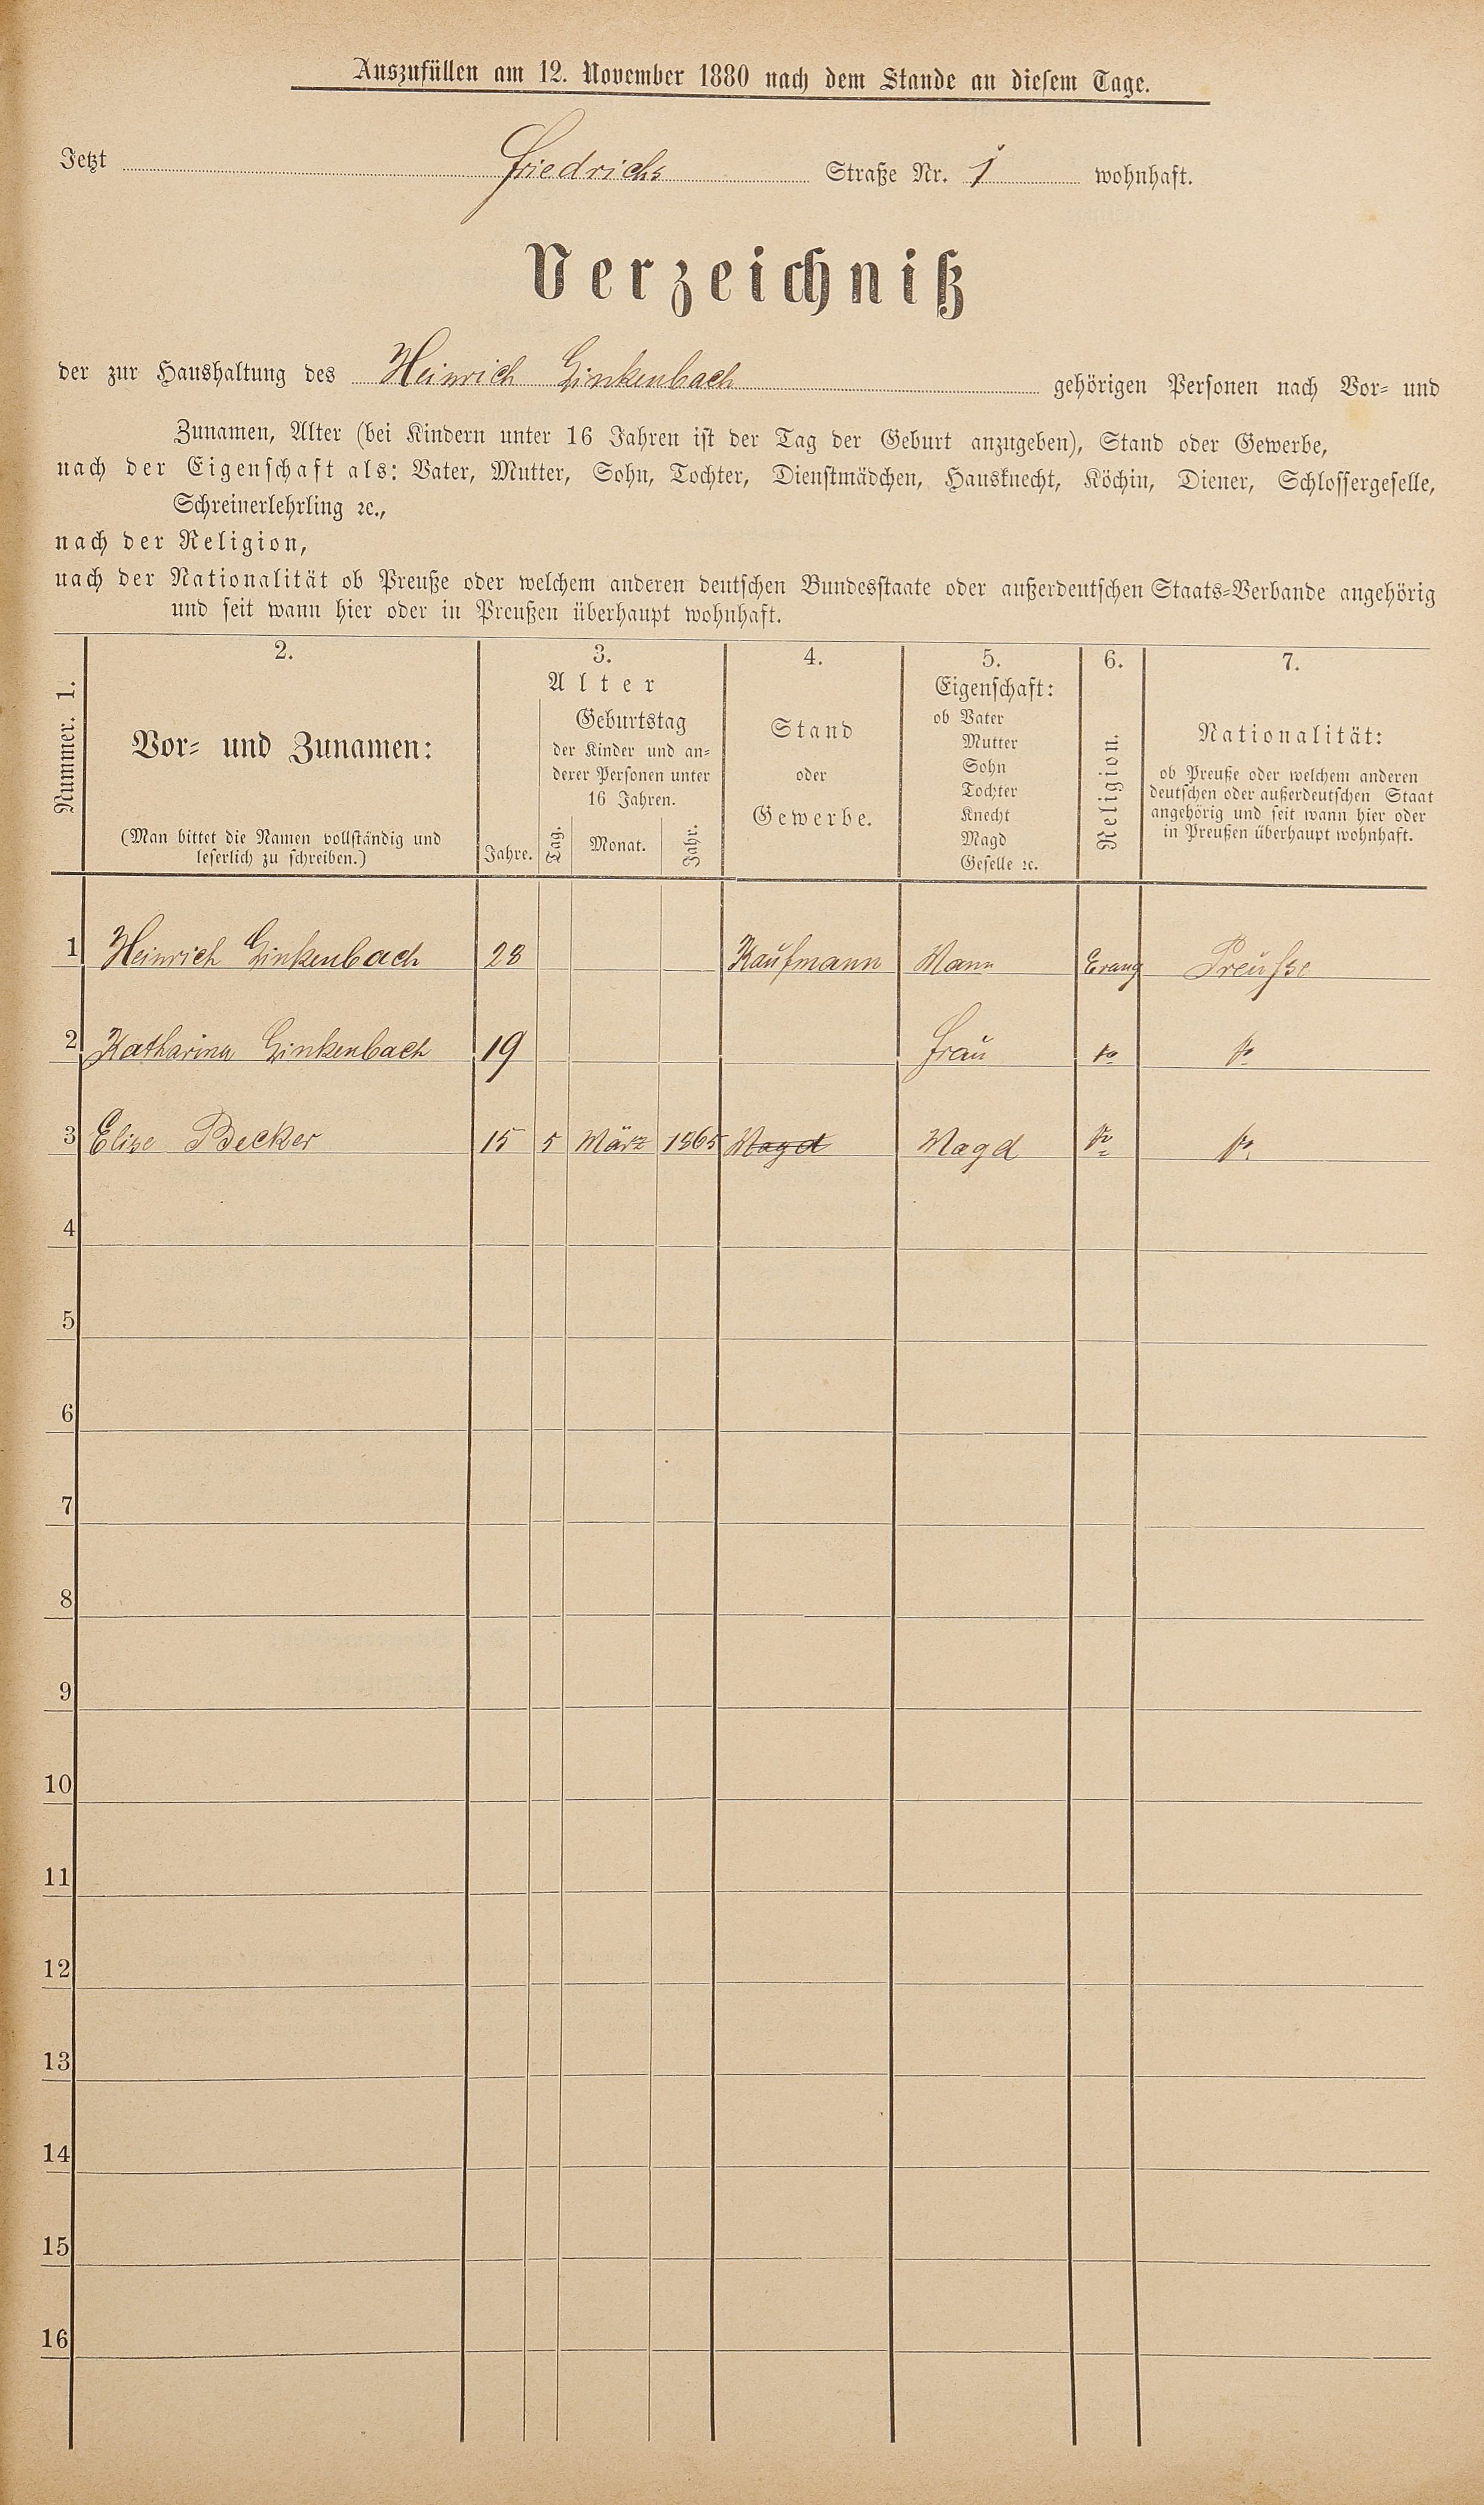 Auszufüllen am 12. November 1880 nach dem Stande an diesem Tage.
Jetzt Friedrichs Straße Nr. 1 wohnhaft.
Verzeichniß
der zur Haushaltung des Heinrich Ginkenbach gehörigen Personen nach Vor- und
Zunamen, Alter (bei Kindern unter 16 Jahren ist der Tag der Geburt anzugeben), Stand oder Gewerbe,
nach der Eigenschaft als: Vater, Mutter, Sohn, Tochter, Dienstmädchen, Hausknecht, Köchin, Diener, Schlossergeselle,
Schreinerlehrling ꝛc.,
nach der Religion,
nach der Nationalität ob Preuße oder welchem anderen deutschen Bundesstaate oder außerdeutschen Staats-Verbande angehörig
und seit wann hier oder in Preußen überhaupt wohnhaft.
Nummer. 1.
2.
Vor- und Zunamen:
(Man bittet die Namen vollständig und
leserlich zu schreiben.)
3.
Alter
Jahre.
Geburtstag
der Kinder und an-
derer Personen unter
16 Jahren.
Tag. Monat. Jahr.
4.
Stand
oder
Gewerbe.
5.
Eigenschaft:
ob Vater
Mutter
Sohn
Tochter
Knecht
Magd
Geselle ꝛc.
6.
Religion.
7.
Nationalität:
ob Preuße oder welchem anderen
deutschen oder außerdeutschen Staat
angehörig und seit wann hier oder
in Preußen überhaupt wohnhaft.
1 Heinrich Ginkenbach 28 Kaufmann Mann Evang Preusse
2 Katharina Ginkenbach 19 Frau
3 Elise Becker 15 5 März 1865 Magd Magd
4
5
6
7
8
9
10
11
12
13
14
15
16